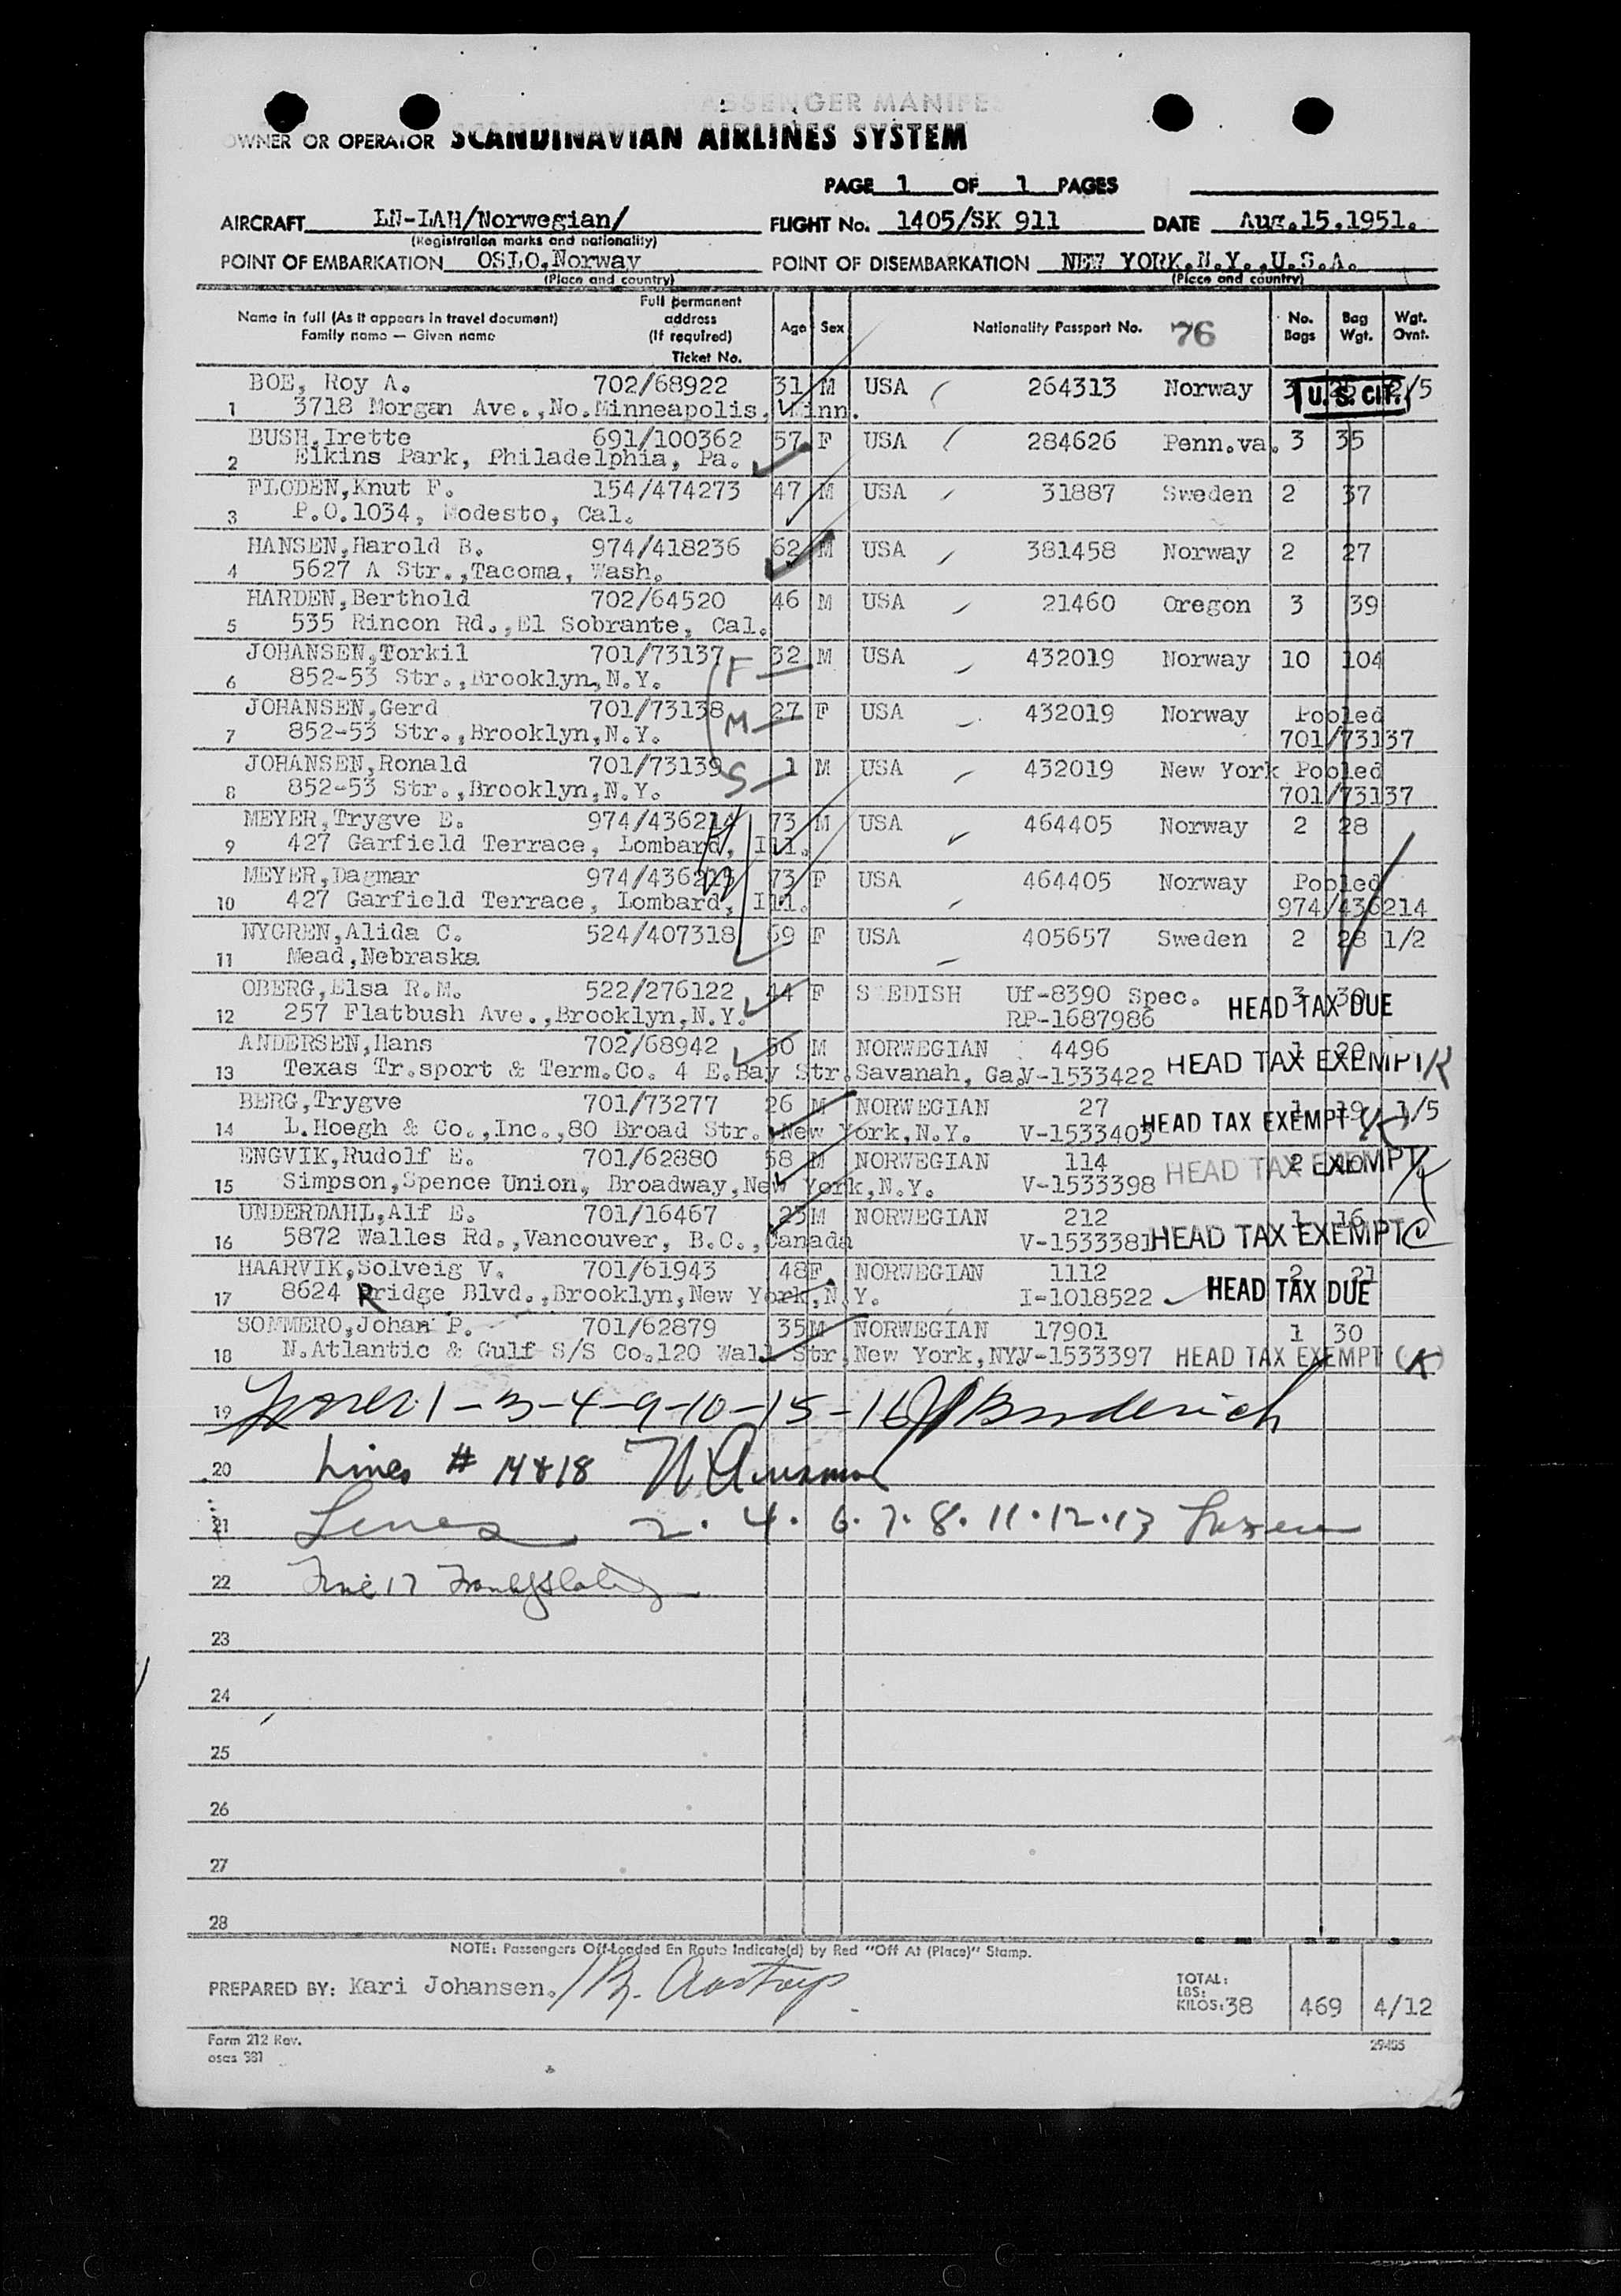 PASSENGER MANIFES
OWNER OR OPERATOR SCANDINAVIAN AIRLINES SYSTEM
PAGE 1 OF 1 PAGES
AIRCRAFT LN-LAH/Norwegian/ FLIGHT No. 1405/SK 911 DATE Aug.15.1951.
(Registration marks and nationality)
POINT OF EMBARKATION OSLO,Norway POINT OF DISEMBARKATION NEW YORK,N.Y.,U.S.A.
(Place and country) (Place and country)
Name in full (As it appears in travel document) Family name — Given name Full permanent address (If required) Ticket No. Age Sex Nationality Passport No. 76 No. Bags Bag Wgt. Wgt. Ovnt.
BOE, Roy A. 702/68922 31 M USA 264313 Norway 3 U.S. CIT. 2/5
1 3718 Morgan Ave.,No.Minneapolis, Minn.
BUSH,Irette 691/100362 57 F USA 284626 Penn.va. 3 35
2 Elkins Park, Philadelphia, Pa.
FLODEN,Knut F. 154/474273 47 M USA 31887 Sweden 2 37
3 P.O.1034, Modesto, Cal.
HANSEN,Harold B. 974/418236 62 M USA 381458 Norway 2 27
4 5627 A Str.,Tacoma, Wash.
HARDEN,Berthold 702/64520 46 M USA 21460 Oregon 3 39
5 535 Rincon Rd.,El Sobrante, Cal.
JOHANSEN,Torkil 701/73137 F 32 M USA 432019 Norway 10 104
6 852-53 Str.,Brooklyn,N.Y.
JOHANSEN,Gerd 701/73138 M 27 F USA 432019 Norway Pooled
7 852-53 Str.,Brooklyn,N.Y. 701/73137
JOHANSEN,Ronald 701/73139 S 1 M USA 432019 New York Pooled
8 852-53 Str.,Brooklyn,N.Y. 701/73137
MEYER,Trygve E. 974/436214 73 M USA 464405 Norway 2 28
9 427 Garfield Terrace, Lombard, Ill.
MEYER,Dagmar 974/436215 73 F USA 464405 Norway Pooled
10 427 Garfield Terrace, Lombard, Ill. 974/436214
NYGREN,Alida C. 524/407318 69 F USA 405657 Sweden 2 28 1/2
11 Mead,Nebraska
OBERG,Elsa R.M. 522/276122 44 F SWEDISH Uf-8390 Spec. 3 30 HEAD TAX DUE
12 257 Flatbush Ave.,Brooklyn,N.Y. RP-1687986
ANDERSEN,Hans 702/68942 50 M NORWEGIAN 4496 1 20 HEAD TAX EXEMPT K
13 Texas Tr.sport & Term.Co. 4 E.Bay Str.Savanah, Ga.V-1533422
BERG,Trygve 701/73277 26 M NORWEGIAN 27 1 19 1/5
14 L.Hoegh & Co.,Inc.,80 Broad Str.,New York,N.Y. V-1533403 HEAD TAX EXEMPT (K)
ENGVIK,Rudolf E. 701/62880 58 M NORWEGIAN 114 2 HEAD TAX EXEMPT
15 Simpson,Spence Union, Broadway,New York,N.Y. V-1533398
UNDERDAHL,Alf E. 701/16467 23 M NORWEGIAN 212 1 16
16 5872 Walles Rd.,Vancouver, B.C.,Canada V-1533381 HEAD TAX EXEMPT C
HAARVIK,Solveig V. 701/61943 48 F. NORWEGIAN 1112 2 21
17 8624 Ridge Blvd.,Brooklyn,New York,N.Y. I-1018522 HEAD TAX DUE
SOMMERO,Johan P. 701/62879 35 M NORWEGIAN 17901 1 30
18 N.Atlantic & Gulf S/S Co.120 Wall Str,New York,NY V-1533397 HEAD TAX EXEMPT (K)
19 1-3-4-9-10-15-16 Broderich
20 Lines # 14 & 18
21 Lines 2. 4. 6. 7. 8. 11. 12. 13
22 Line 17
23
24
25
26
27
28
NOTE: Passengers Off-Loaded En Route Indicate(d) by Red "Off At (Place)" Stamp.
PREPARED BY: Kari Johansen./ TOTAL: LBS: KILOS: 38 469 4/12
Form 212 Rev.
osas 381 29405